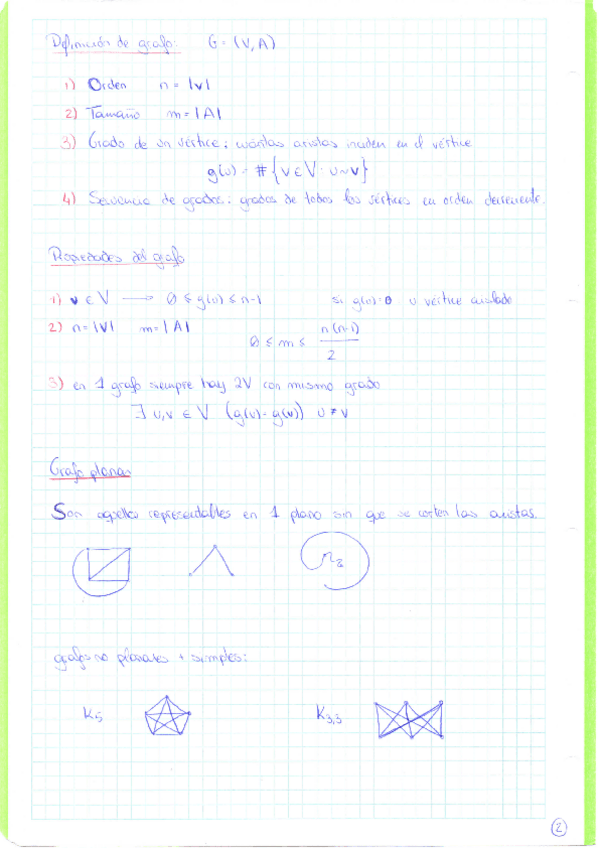 Definición de grafo: G = (V, A)
1) Orden n = |V|
2) Tamaño m = |A|
3) Grado de un vértice: cuántas aristas inciden en el vértice
g(u) = #{v ∈ V : u ~ v}
4) Secuencia de grados: grados de todos los vértices en orden decreciente.
Propiedades del grafo
1) v ∈ V → 0 ≤ g(v) ≤ n-1 si g(u)=0 u vértice aislado
2) n = |V| m = |A| 0 ≤ m ≤ n(n-1)/2
3) en 1 grafo siempre hay 2V con mismo grado
∃ u,v ∈ V (g(u) = g(v)) u ≠ v
Grafo planar
Son aquellos representables en 1 plano sin que se corten las aristas.
grafos no planares + simples:
K5 K3,3
2